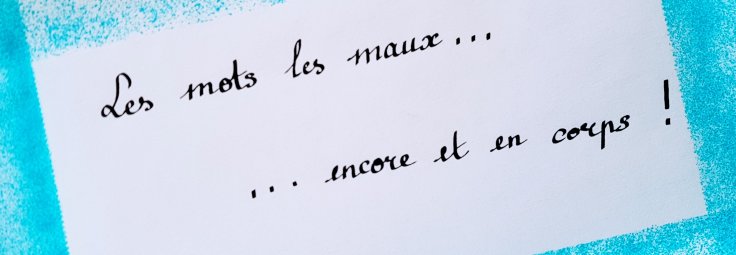 Les mots les maux...
... encore et en corps !